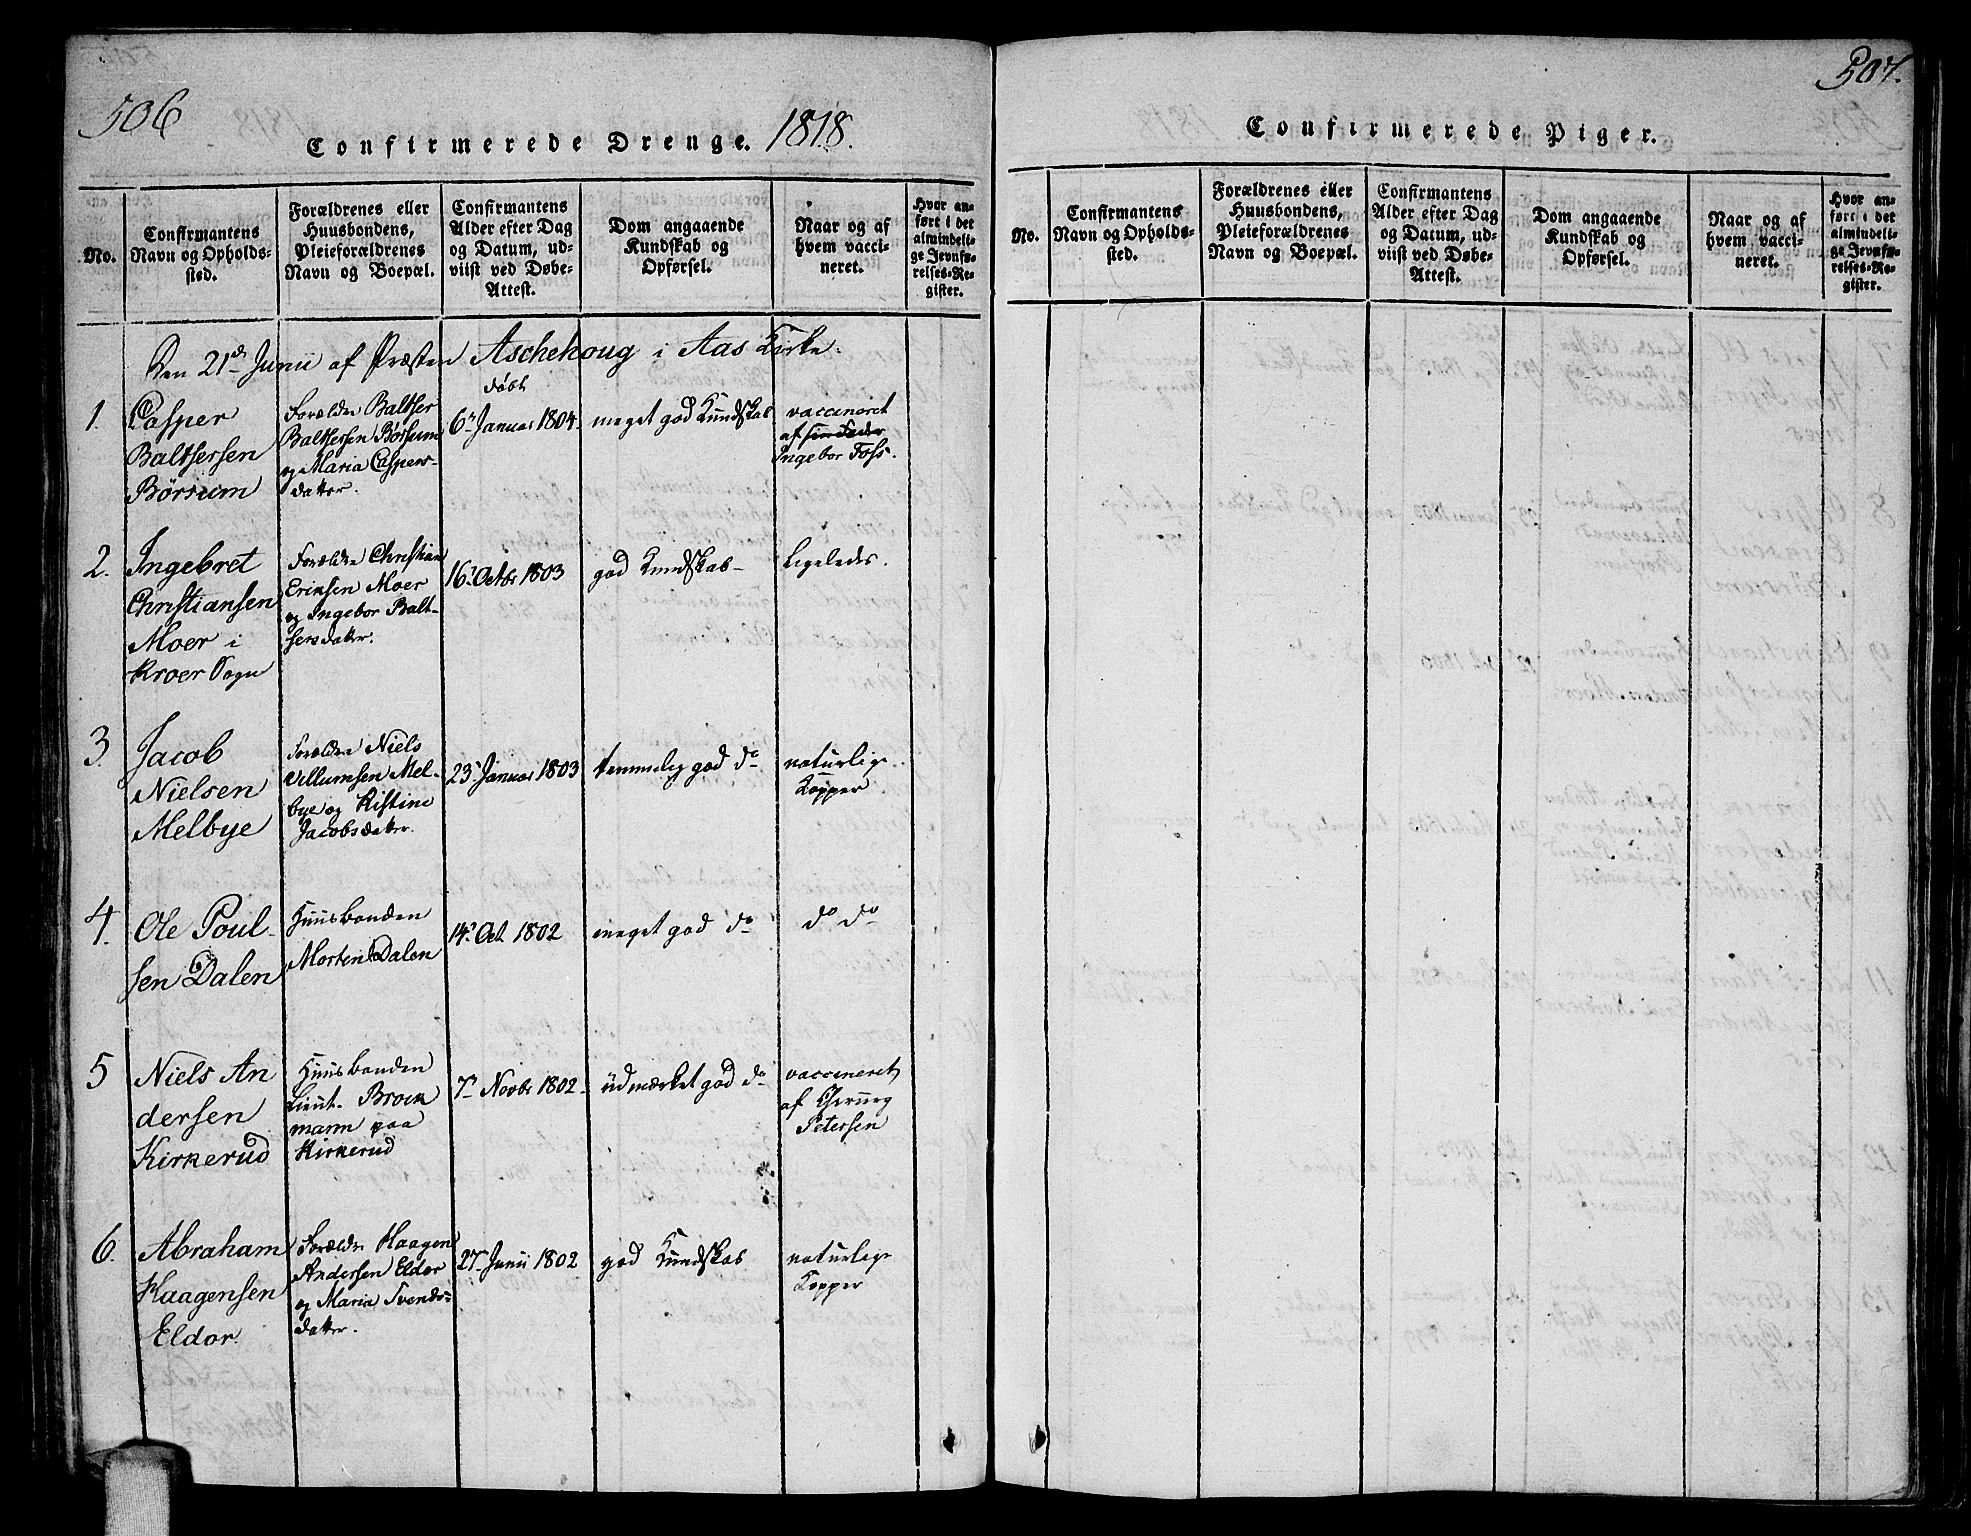 506
Confirmerede Drenge. 1818.
No.
Confirmantens
Navn og Opholds-
sted.
Forældrenes eller
Huusbondens,
Pleieforældrenes
Navn og Boepæl.
Confirmantens
Alder efter Dag
og Datum, ud-
viist ved Døbe-
Attest.
Dom angaaende
Kundskab og
Opførsel.
Naar og af
hvem vacci-
neret.
Hvor an-
ført i det
almindeli-
ge Jevnfø-
relses-Re-
gister.
Den 21de Junii af Præsten Aschehoug i Aas Kirke.
1.
Casper
Baltsersen
Börsum
Forældre Baltser
Baltsersen Børsum
og Maria Caspers-
datter.
døbt
6te Januar 1804.
meget god Kundskab
vaccineret
af sin Fader
Ingebor Foss.
2.
Ingebret
Christiansen
Moer i
Kroer Sogn
Forældre Christian
Eriksen Moer
og Ingebor Balt-
sersdatter.
16. Octbr 1803
god Kundskab
ligeledes.
3.
Jacob
Nielsen
Melbye
Forældre Niels
Villumsen Mel-
bye og Kistine
Jacobsdatter.
23. Januar 1803
temmelig god do
naturlige
Kopper
4.
Ole Poul-
sen Dalen
Huusbonden
Morten Dalen
14. Oct 1802
meget god do
do do
5
Niels An
dersen
Kirkerud
Huusbonden
Lieut. Brock
mann paa
Kirkerud
7de Novbr 1802
udmærket god do
vaccineret
af
Petersen
6.
Abraham
Haagensen
Eldor
Forældre Haagen
Andersen Eldor
og Maria Svends-
datter.
27. Junii 1802
god Kundskab
naturlige
Kopper
507.
Confirmerede Piger.
No.
Confirmantens
Navn og Opholds-
sted.
Forældrenes eller
Huusbondens,
Pleieforældrenes
Navn og Boepæl.
Confirmantens
Alder efter Dag
og Datum, ud-
viist ved Døbe-
Attest.
Dom angaaende
Kundskab og
Opførsel.
Naar og af
hvem vacci-
neret.
Hvor an-
ført i det
almindeli-
ge Jevnfø-
relses-Re-
gister.